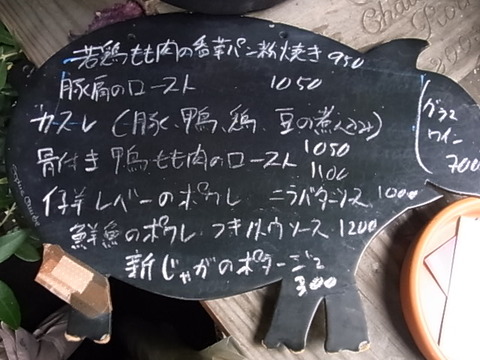 若鶏もも肉の香草パン粉焼き 950
豚肩のロースト 1050
カスレ (豚、鴨、鶏、豆の煮込み)
1050
骨付き鴨もも肉のロースト 1100
仔羊レバーのポワレ ニラバターソース 1000
鮮魚のポワレ ふきのとうソース 1200
新じゃがのポタージュ
300
グラス
ワイン
700